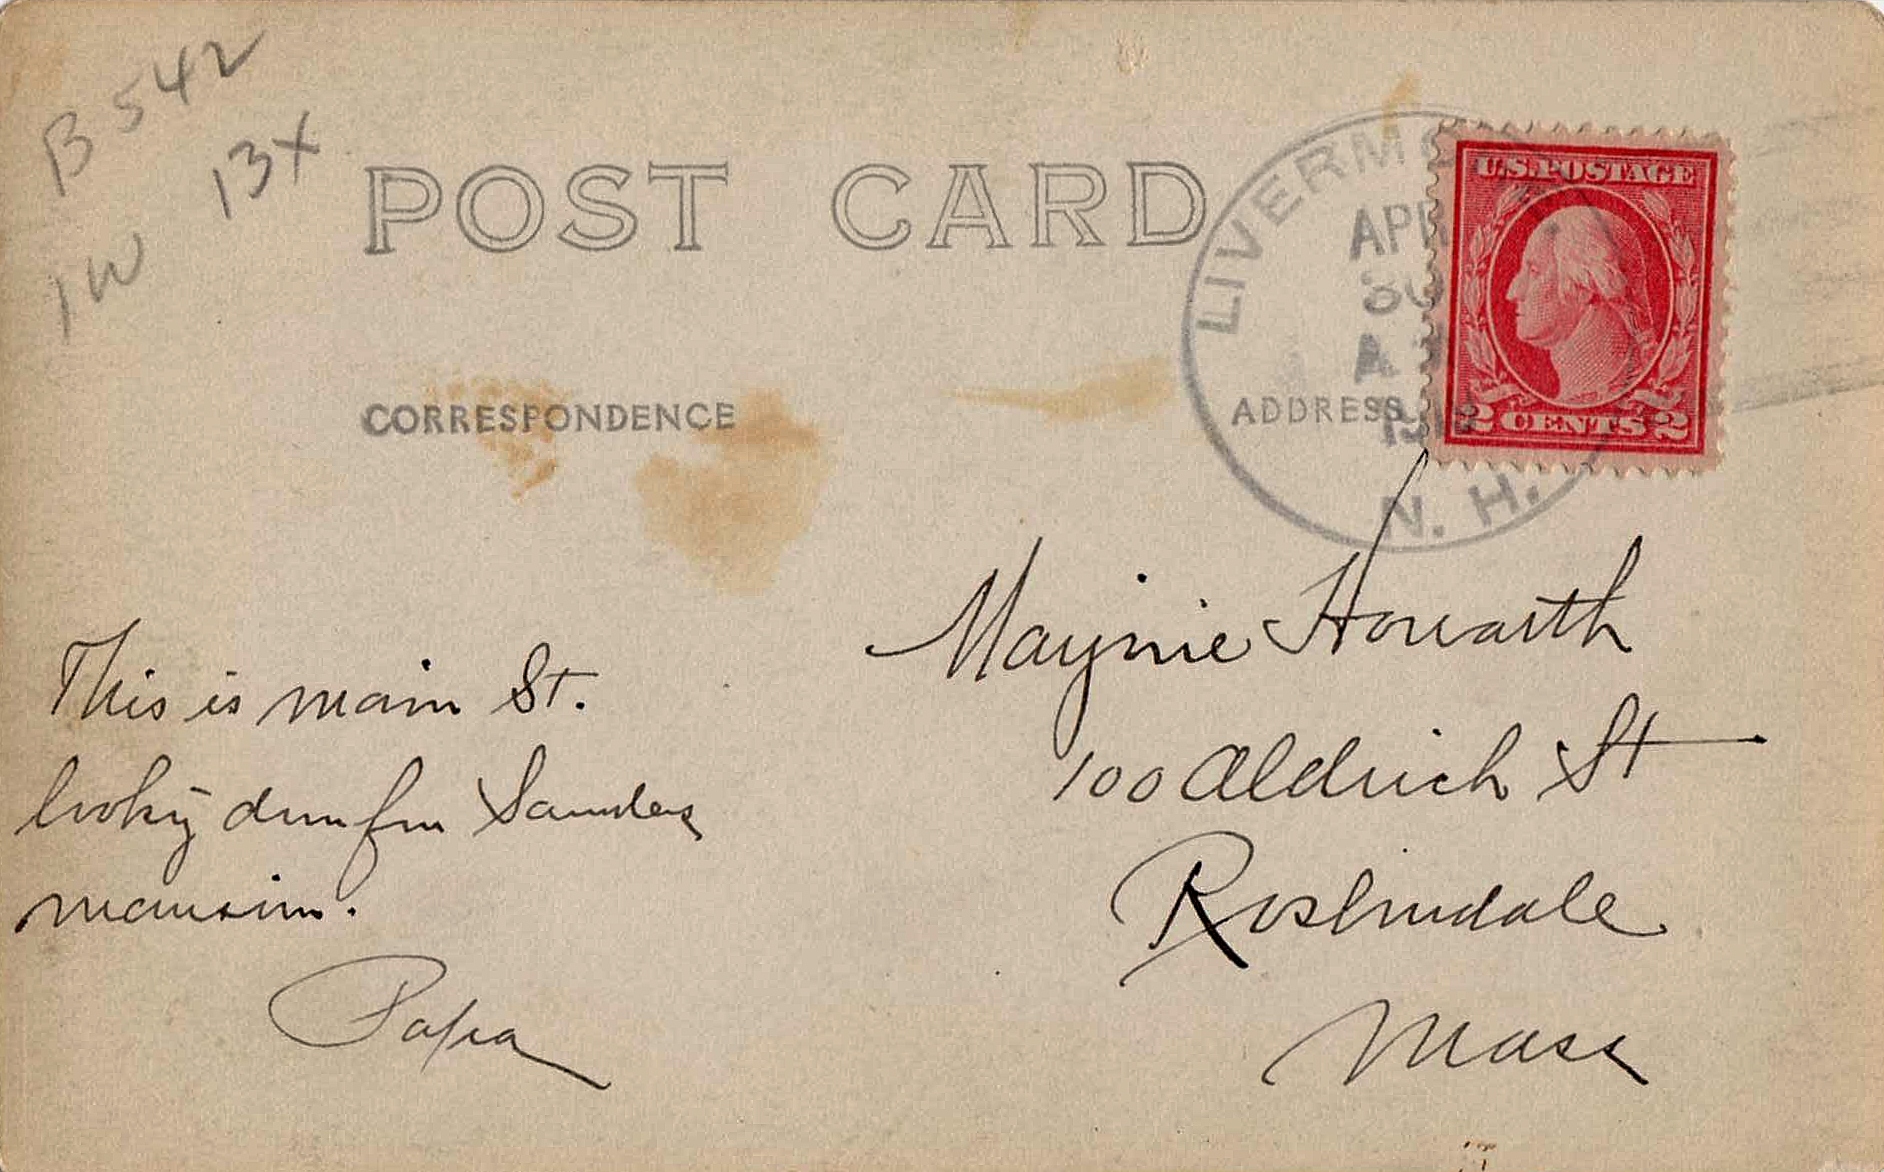 B 542
13x
1W
POST CARD
LIVERMO
APR
30
A
191
N. H.
U.S. POSTAGE
2 CENTS 2
CORRESPONDENCE
ADDRESS
This is main St.
looking down from Saunders
mansion.
Papa
Maynie Howarth
100 Aldrich St
Roslindale
Mass